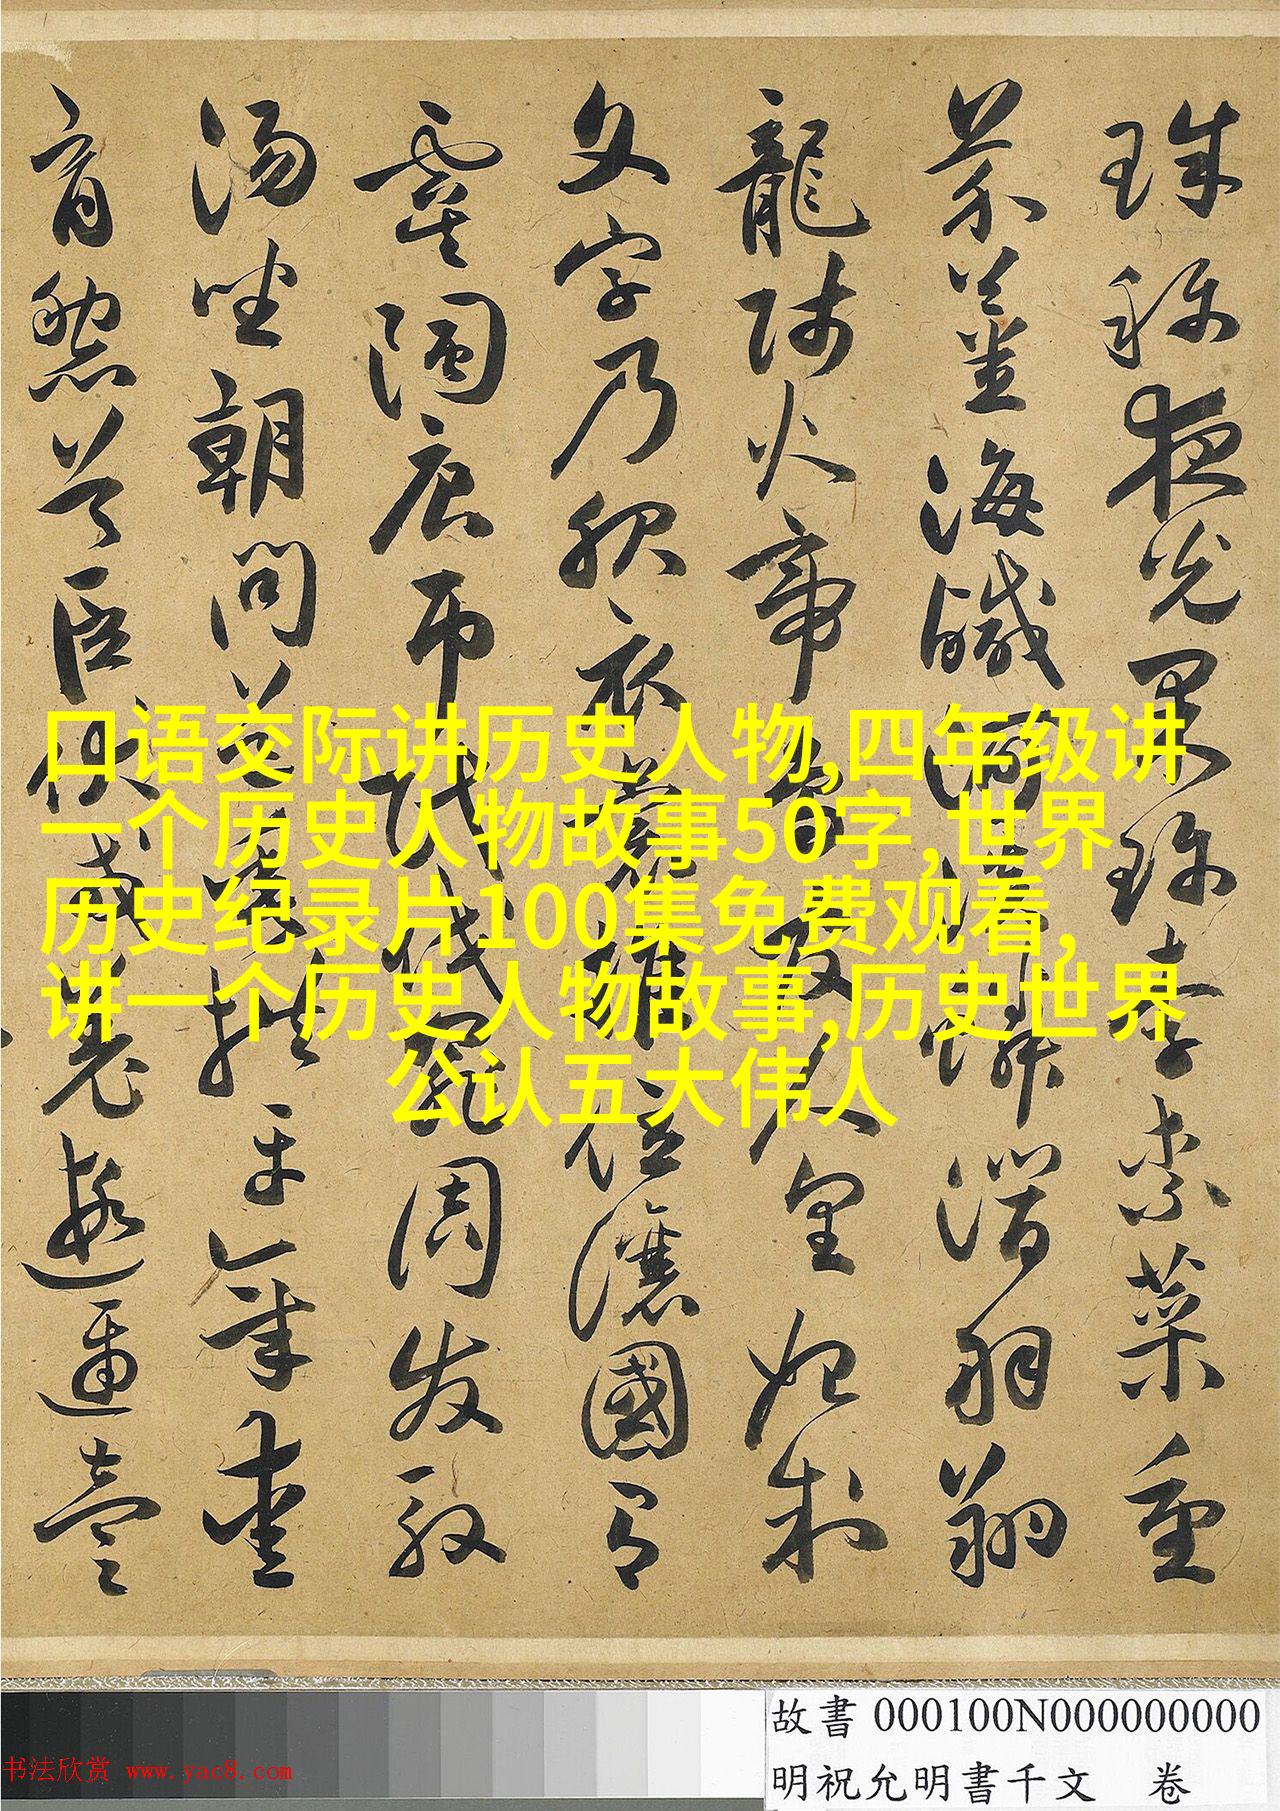 珠稱夜光果珍李柰菜重
芥薑海鹹河淡鱗潛羽翔
龍師火帝鳥官人皇始制
文字乃服衣裳推位讓國有
虞陶唐弔民伐罪周發殷
湯坐朝問道垂拱平章愛
育黎首臣伏戎羌遐邇壹
口语交际讲历史人物,四年级讲
一个历史人物故事50字,世界
历史纪录片100集免费观看,
讲一个历史人物故事,历史世界
公认五大伟人
故書 000100N000000000
明祝允明書千文 卷
书法欣赏 www.yac8.com